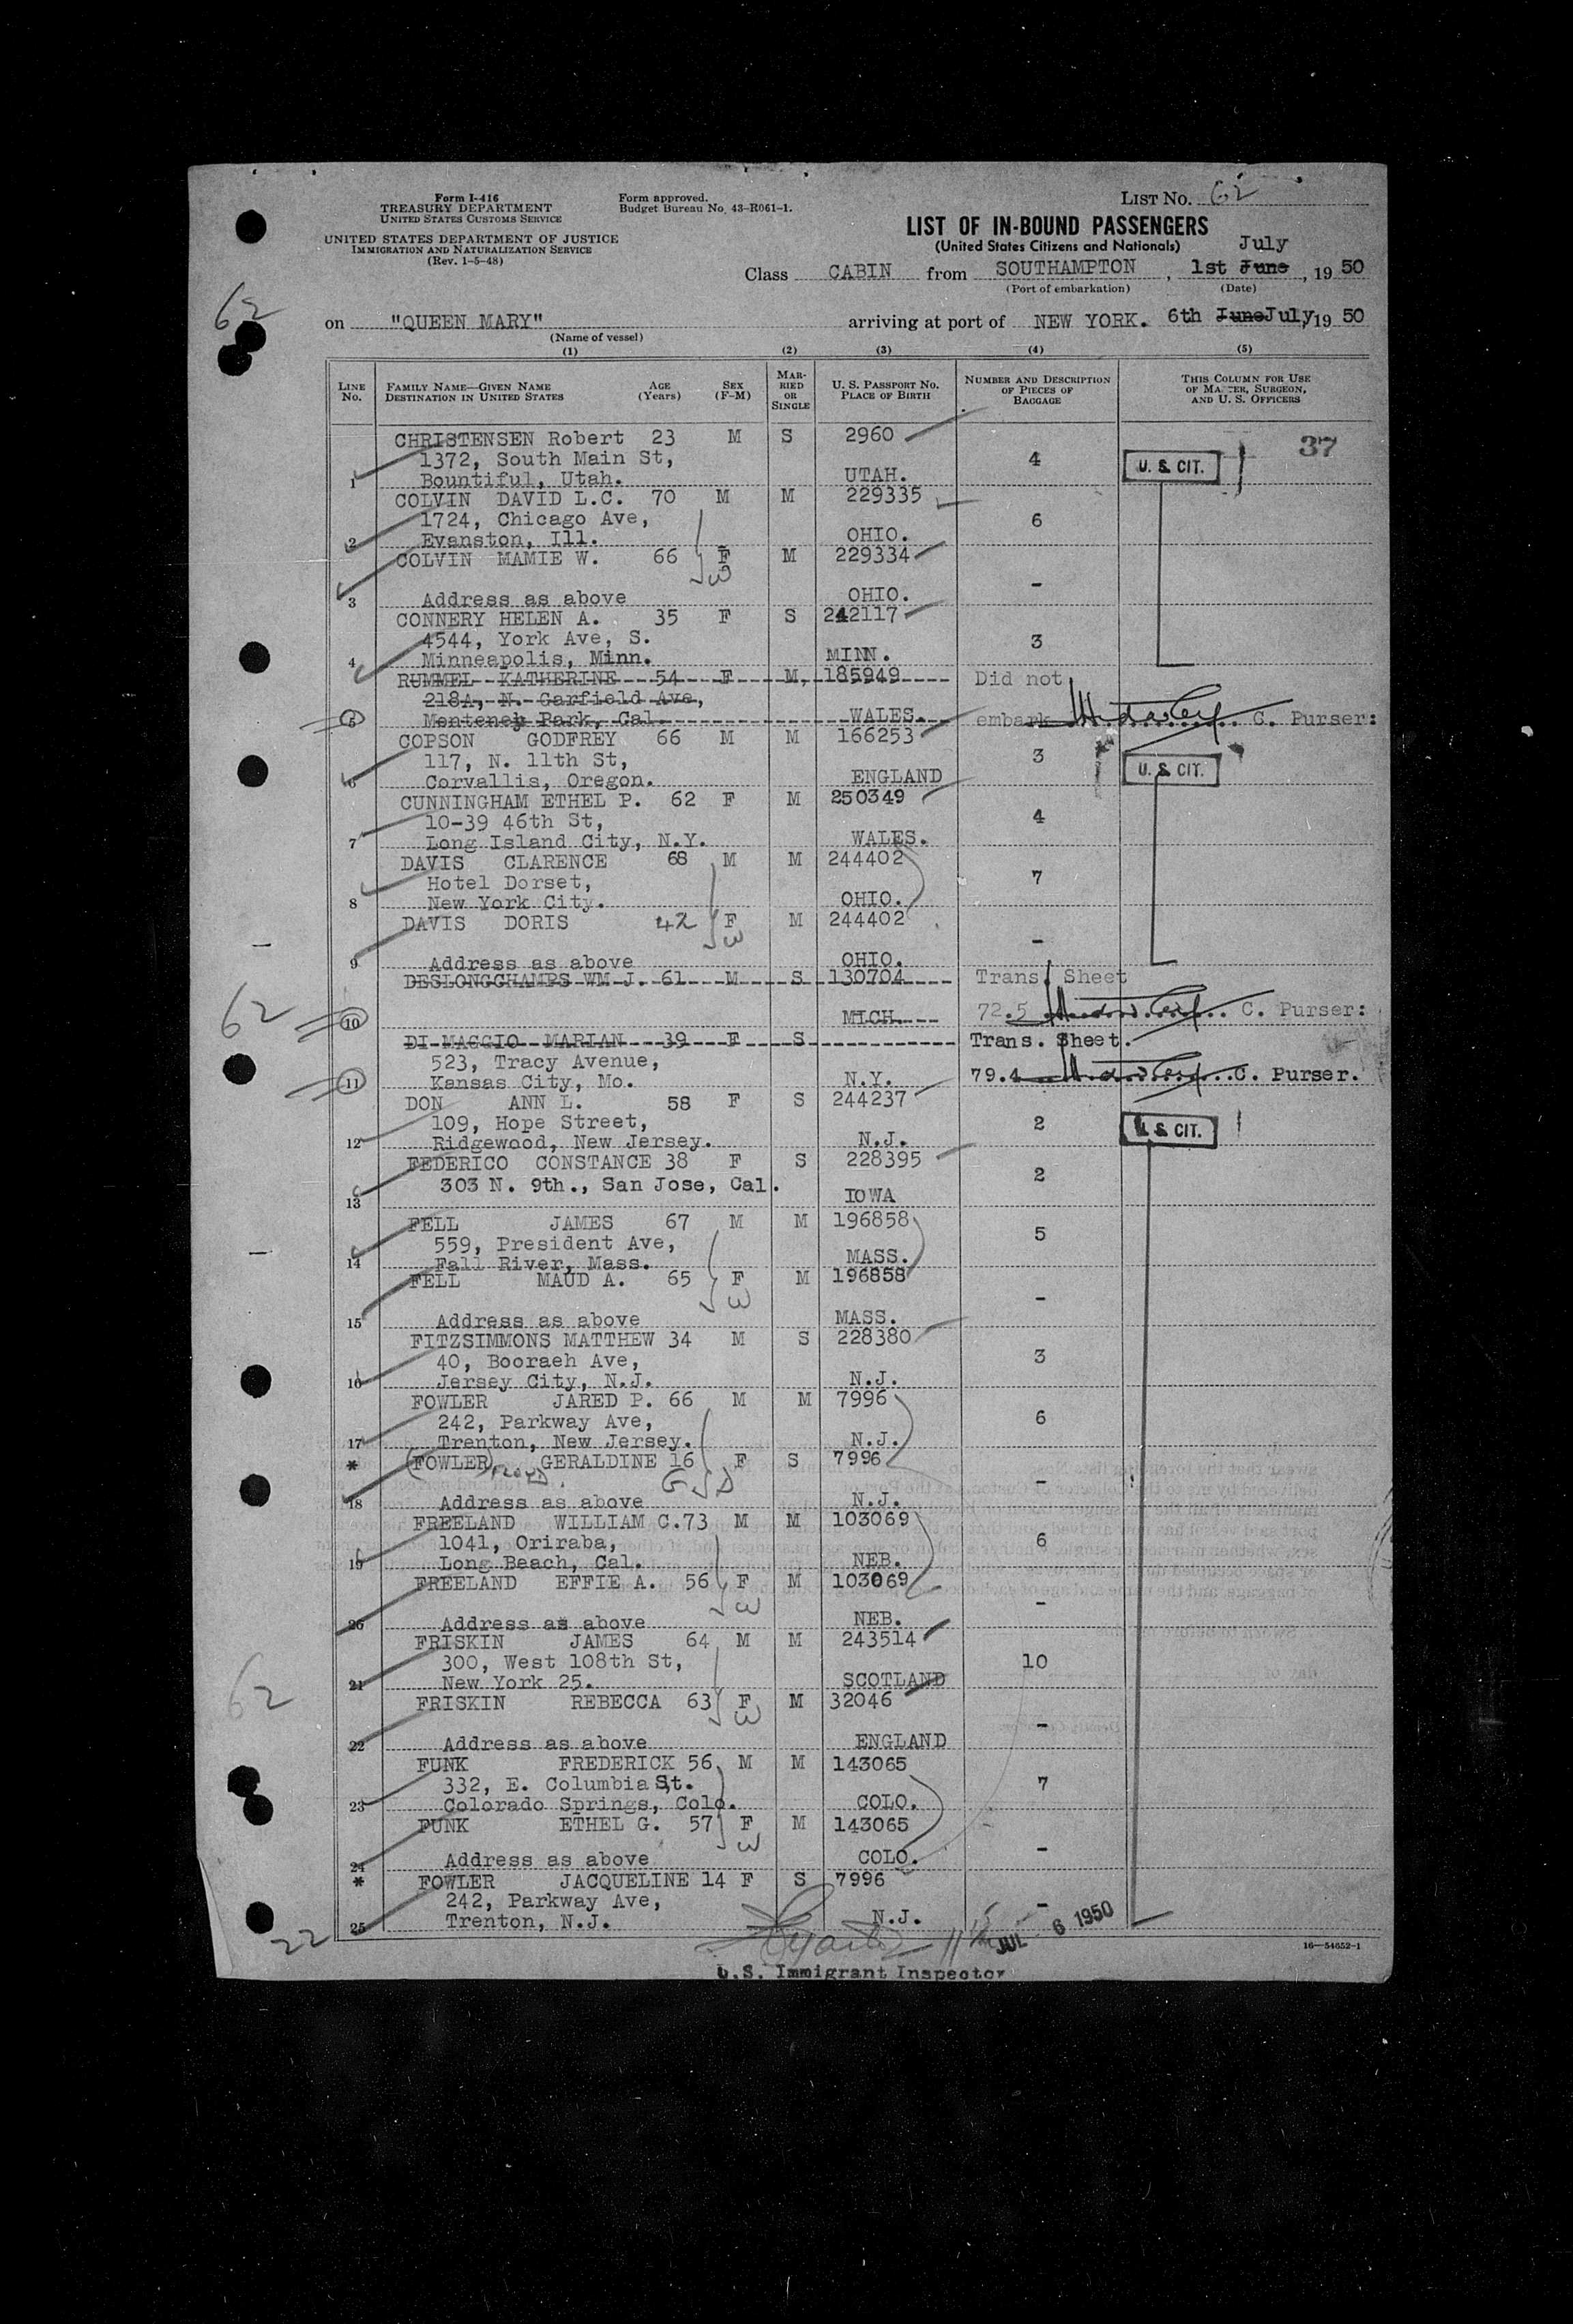 Form I-416
TREASURY DEPARTMENT
UNITED STATES CUSTOMS SERVICE
UNITED STATES DEPARTMENT OF JUSTICE
IMMIGRATION AND NATURALIZATION SERVICE
(Rev. 1-5-48)
Form approved.
Budget Bureau No. 43-R061-1.
LIST NO. 62
LIST OF IN-BOUND PASSENGERS
(United States Citizens and Nationals)
July
Class CABIN from SOUTHAMPTON, 1st June, 1950
(Port of embarkation) (Date)
62
on "QUEEN MARY" arriving at port of NEW YORK. 6th June July, 1950
(Name of vessel)
(1) (2) (3) (4) (5)
LINE NO. FAMILY NAME—GIVEN NAME DESTINATION IN UNITED STATES AGE (Years) SEX (F-M) MARRIED OR SINGLE U. S. PASSPORT NO. PLACE OF BIRTH NUMBER AND DESCRIPTION OF PIECES OF BAGGAGE THIS COLUMN FOR USE OF MASTER, SURGEON, AND U. S. OFFICERS
CHRISTENSEN Robert 23 M S 2960 37
1372, South Main St, 4 U. S. CIT.
1 Bountiful, Utah. UTAH.
COLVIN DAVID L.C. 70 M M 229335
1724, Chicago Ave, 6
2 Evanston, Ill. OHIO.
COLVIN MAMIE W. 66 F M 229334
W -
3 Address as above OHIO.
CONNERY HELEN A. 35 F S 242117
4544, York Ave, S. 3
4 Minneapolis, Minn. MINN.
RUMMEL KATHERINE 54 F M, 185949 Did not
218A, N. Garfield Ave,
5 Monterey Park, Cal. WALES. embark C. Purser:
COPSON GODFREY 66 M M 166253
117, N. 11th St, 3 U. S. CIT.
6 Corvallis, Oregon. ENGLAND
CUNNINGHAM ETHEL P. 62 F M 250349
10-39 46th St, 4
7 Long Island City, N.Y. WALES.
DAVIS CLARENCE 68 M M 244402
Hotel Dorset, 7
8 New York City. OHIO.
DAVIS DORIS 42 F M 244402
W -
9 Address as above OHIO.
DESLONGCHAMPS WM J. 61 M S 130704 Trans. Sheet
62
10 MICH. 72.5 C. Purser:
DI MAGGIO MARIAN 39 F S Trans. Sheet.
523, Tracy Avenue,
11 Kansas City, Mo. N.Y. 79.4 C. Purser.
DON ANN L. 58 F S 244237
109, Hope Street, 2 U. S. CIT.
12 Ridgewood, New Jersey. N.J.
FEDERICO CONSTANCE 38 F S 228395
303 N. 9th., San Jose, Cal. 2
13 IOWA
FELL JAMES 67 M M 196858
559, President Ave, 5
14 Fall River, Mass. MASS.
FELL MAUD A. 65 F M 196858
W -
15 Address as above MASS.
FITZSIMMONS MATTHEW 34 M S 228380
40, Booraeh Ave, 3
16 Jersey City, N.J. N.J.
FOWLER JARED P. 66 M M 7996
242, Parkway Ave, 6
17 Trenton, New Jersey. N.J.
* (FOWLER) GERALDINE 16 F S 7996
G D -
18 Address as above N.J.
FREELAND WILLIAM C. 73 M M 103069
1041, Oriraba, 6
19 Long Beach, Cal. NEB.
FREELAND EFFIE A. 56 F M 103069
W -
20 Address as above NEB.
FRISKIN JAMES 64 M M 243514
300, West 108th St, 10
21 New York 25. SCOTLAND
62
FRISKIN REBECCA 63 F M 32046
W -
22 Address as above ENGLAND
FUNK FREDERICK 56 M M 143065
332, E. Columbia St. 7
23 Colorado Springs, Colo. COLO.
FUNK ETHEL G. 57 F M 143065
W -
24 Address as above COLO.
* FOWLER JACQUELINE 14 F S 7996
242, Parkway Ave, -
25 Trenton, N.J. N.J.
22 JUL 6 1950
16—54652-1
U.S. Immigrant Inspector